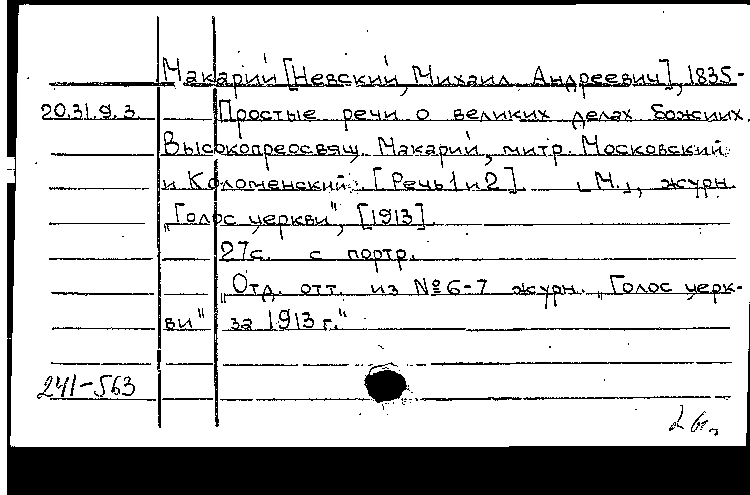 Макарий [Невский, Михаил Андреевич], 1835-
20.31.9.3 Простые речи о великих делах божиих.
Высокопреосвящ. Макарий, митр. Московский
и Коломенский. [Речь 1 и 2]. [М.], журн.
"Голос церкви", [1913].
27с. с портр.
"Отд. отт. из № 6-7 журн. "Голос церк-
ви" за 1913 г."
241-563